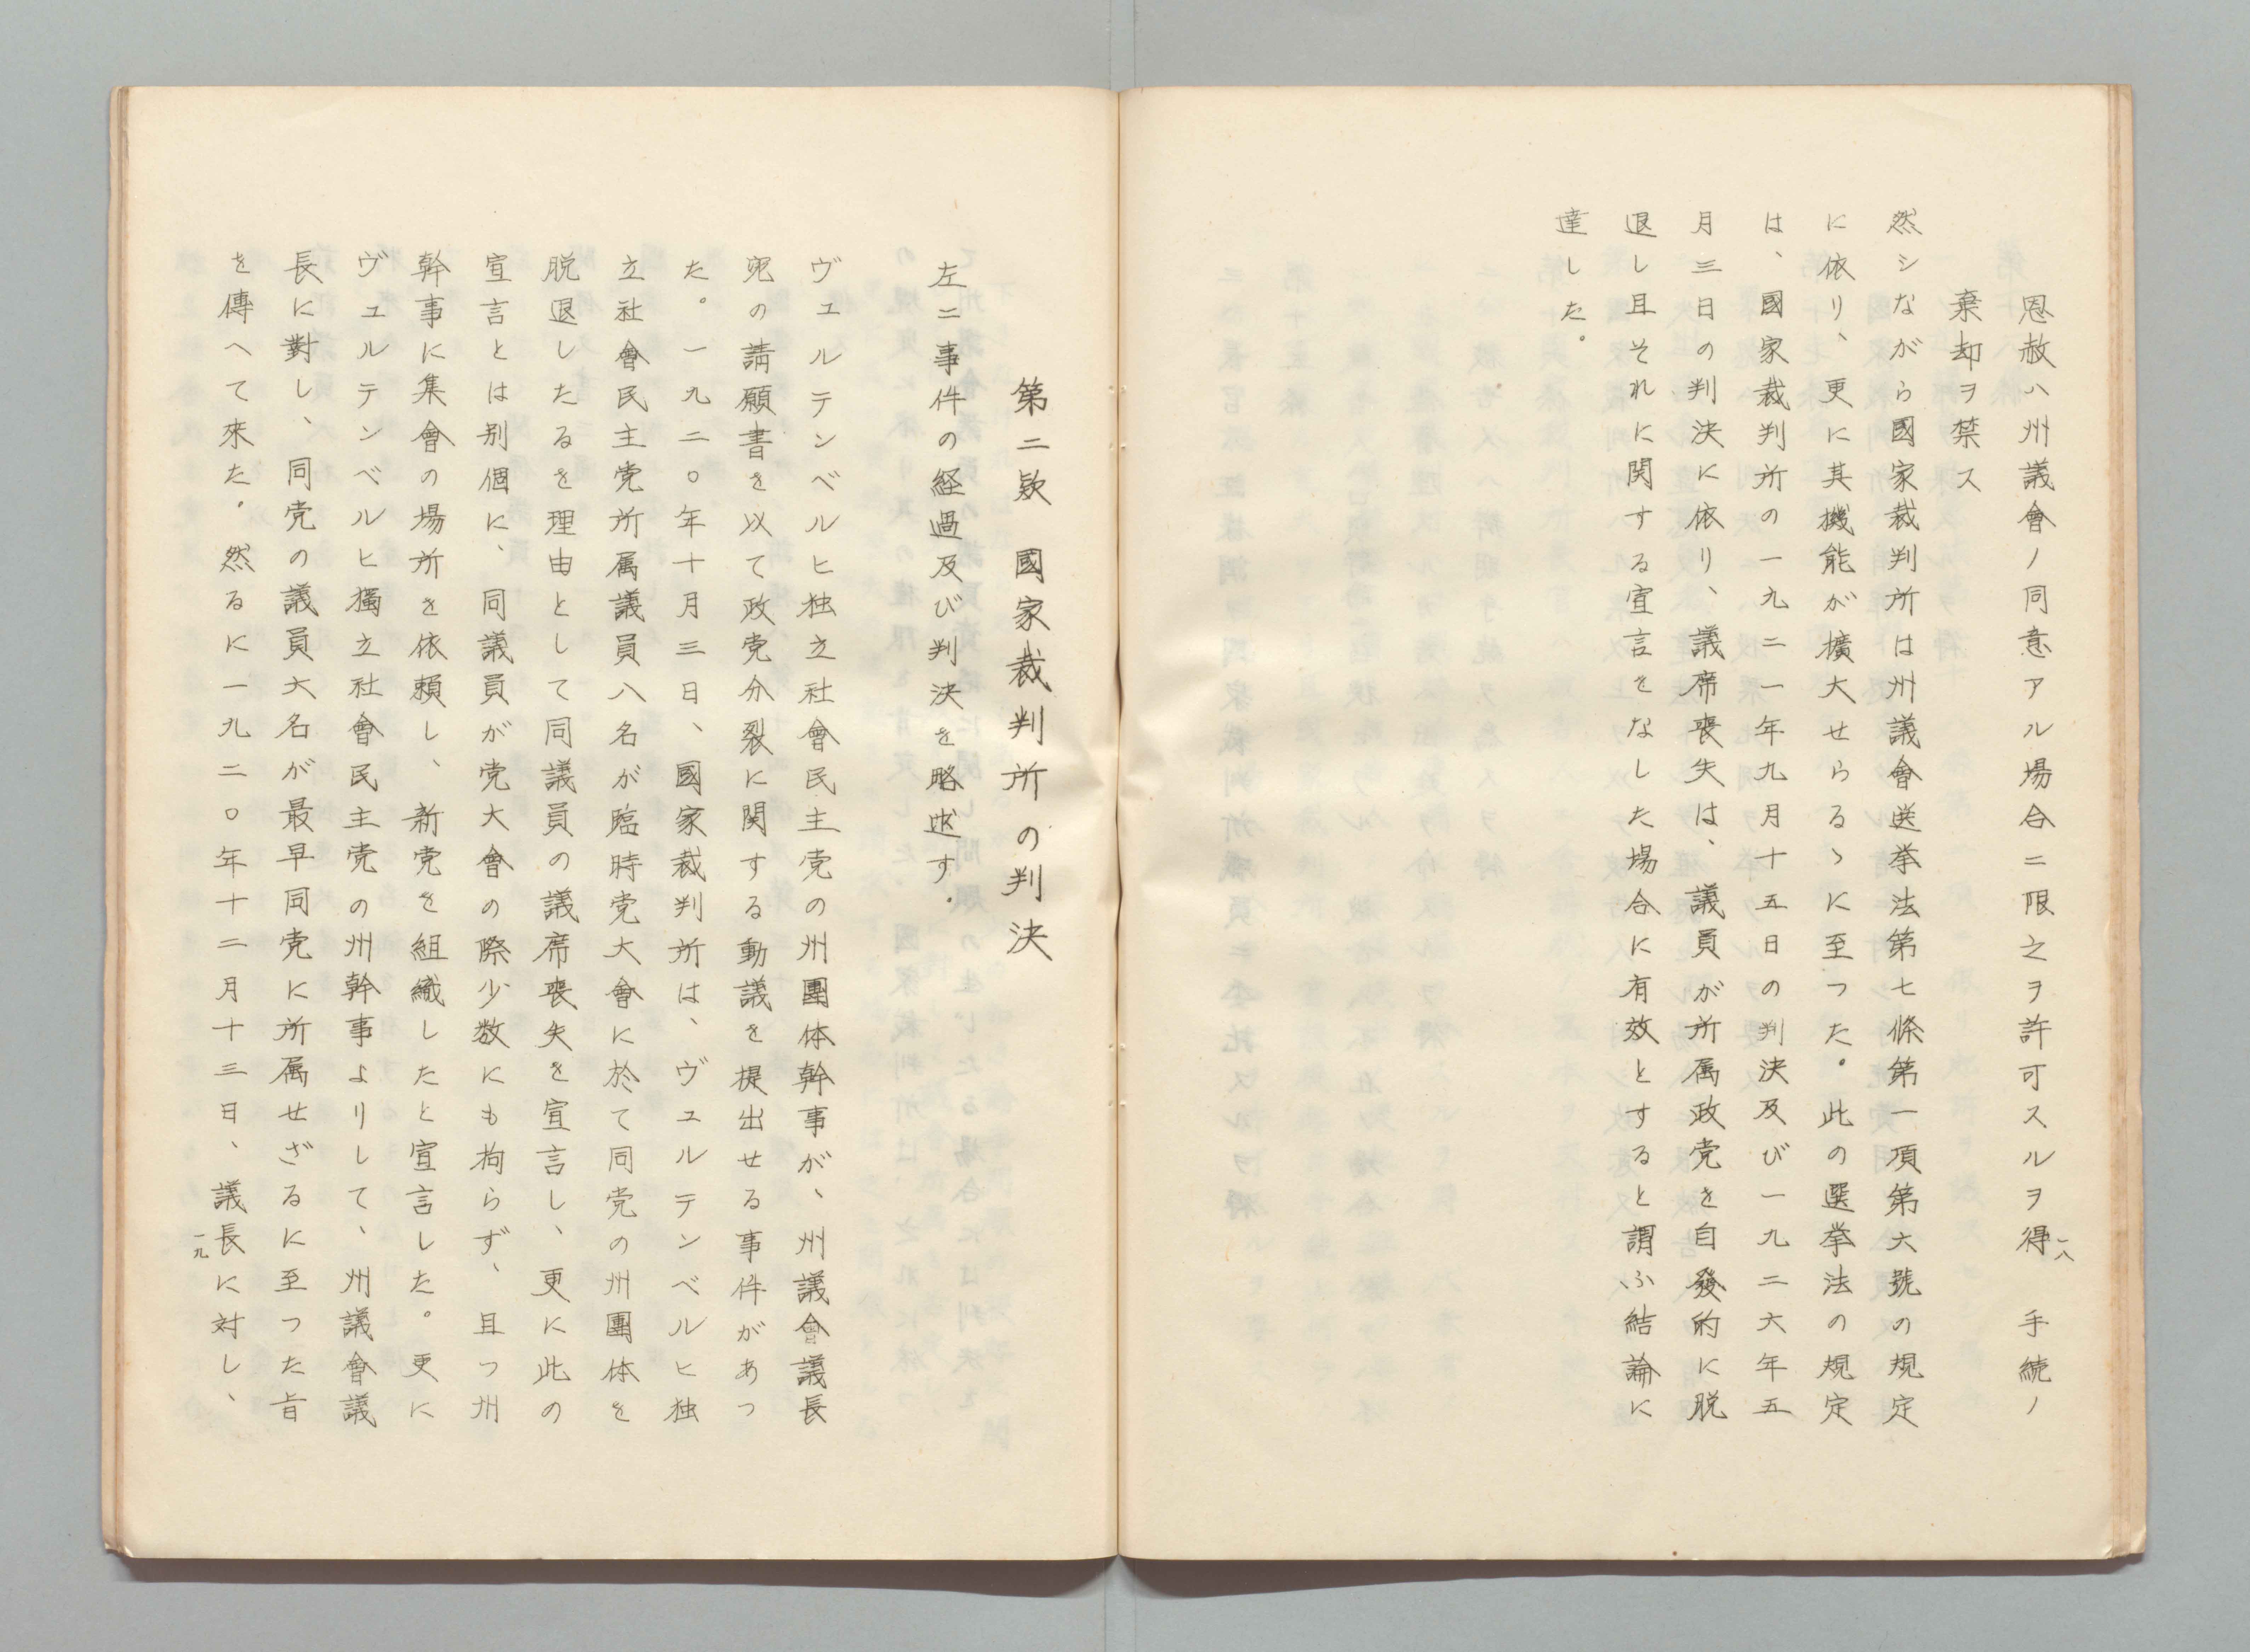 恩赦ハ州議會ノ同意アル場合ニ限之ヲ許可スルヲ得　手続ノ
棄却ヲ禁ス
然シながら國家裁判所は州議會送挙法第七條第一項第六號の規定
に依リ、更に其機能が擴大せらるゝに至つた。此の選挙法の規定
は、國家裁判所の一九二一年九月十五日の判決及び一九二六年五
月三日の判決に依り、議席喪失は、議員が所属政党を自發的に脱
退し且それに関する宣言をなした場合に有效とすると謂ふ結論に
達した。
一八
第二款　國家裁判所の判決
左ニ事件の経過及び判決を略述す.
ヴュルテンベルヒ独立社會民主党の州團体幹事が、州議會議長
宛の請願書を以て政党分裂に関する動議を提出せる事件があつ
た。一九二〇年十月三日、國家裁判所は、ヴュルテンベルヒ独
立社會民主党所属議員八名が臨時党大會に於て同党の州團体を
脱退したるを理由として同議員の議席喪失を宣言し、更に此の
宣言とは別個に、同議員が党大會の際少数にも拘らず、且つ州
幹事に集會の場所を依頼し、新党を組織したと宣言した。更に
ヴュルテンベルヒ獨立社會民主党の州幹事よりして、州議會議
長に對し、同党の議員六名が最早同党に所属せざるに至つた旨
を傳へて來た。然るに一九二〇年十二月十三日、議長に対し、
一九